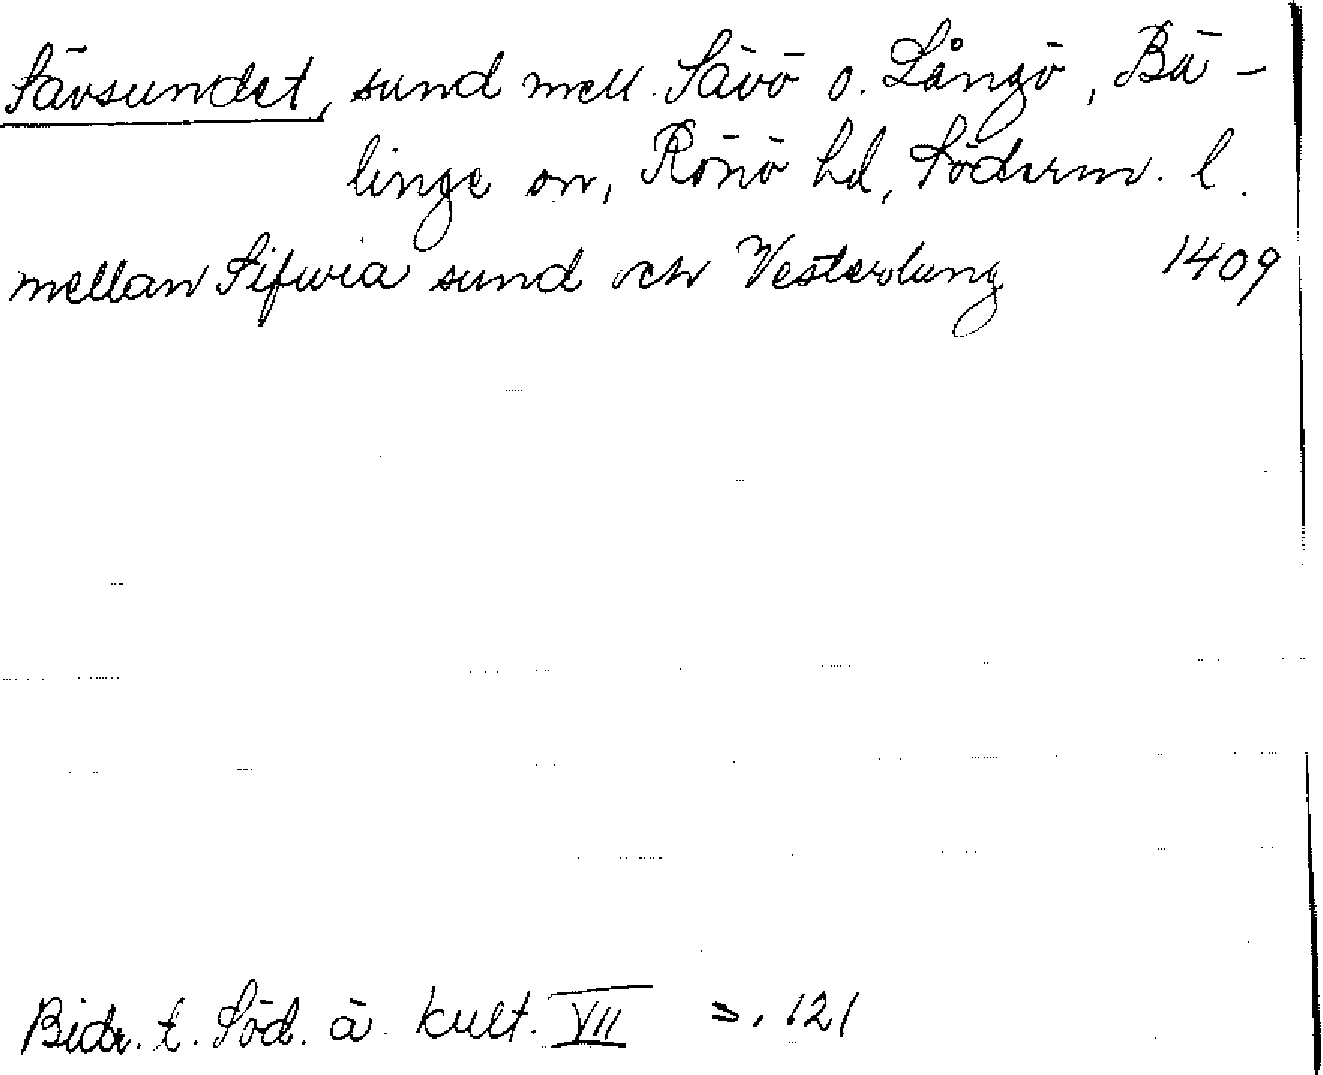 Sävsundet, sund mell. Sävö o. Långö, Bä-
linge sn, Rönö hd, Söderm. l.
mellan Sifwia sund och Vesterdung 1409
Bidr. t. Söd. ä. kult. VII s. 121